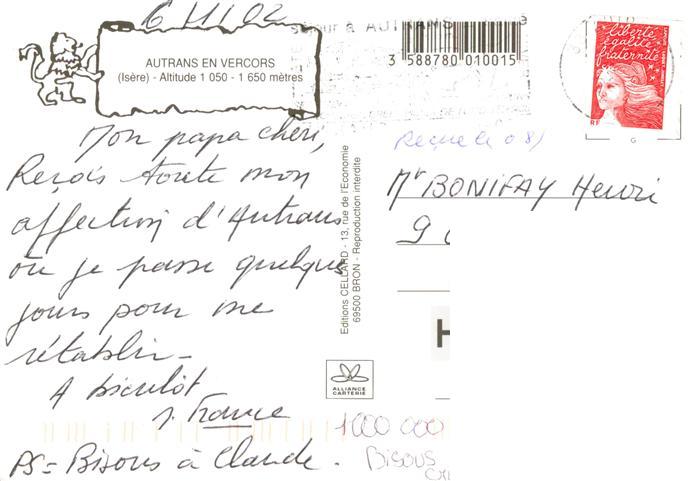 6 11 02
AUTRANS EN VERCORS
(Isère) - Altitude 1 050 - 1 650 mètres
Mon papa chéri,
Reçois toute mon
affection d'Autrans
où je passe quelques
jours pour me
rétablir -
A bientôt
France
PS = Bisous à Claude.
Editions CELLARD - 13, rue de l'Economie
69500 BRON - Reproduction interdite
ALLIANCE
CARTERIE
à AUTRANS
3 588780 010015
liberté
égalité
fraternité
RF
Reçue le 8/
Mr BONIFAY Henri
9
H
1000 000
Bisous